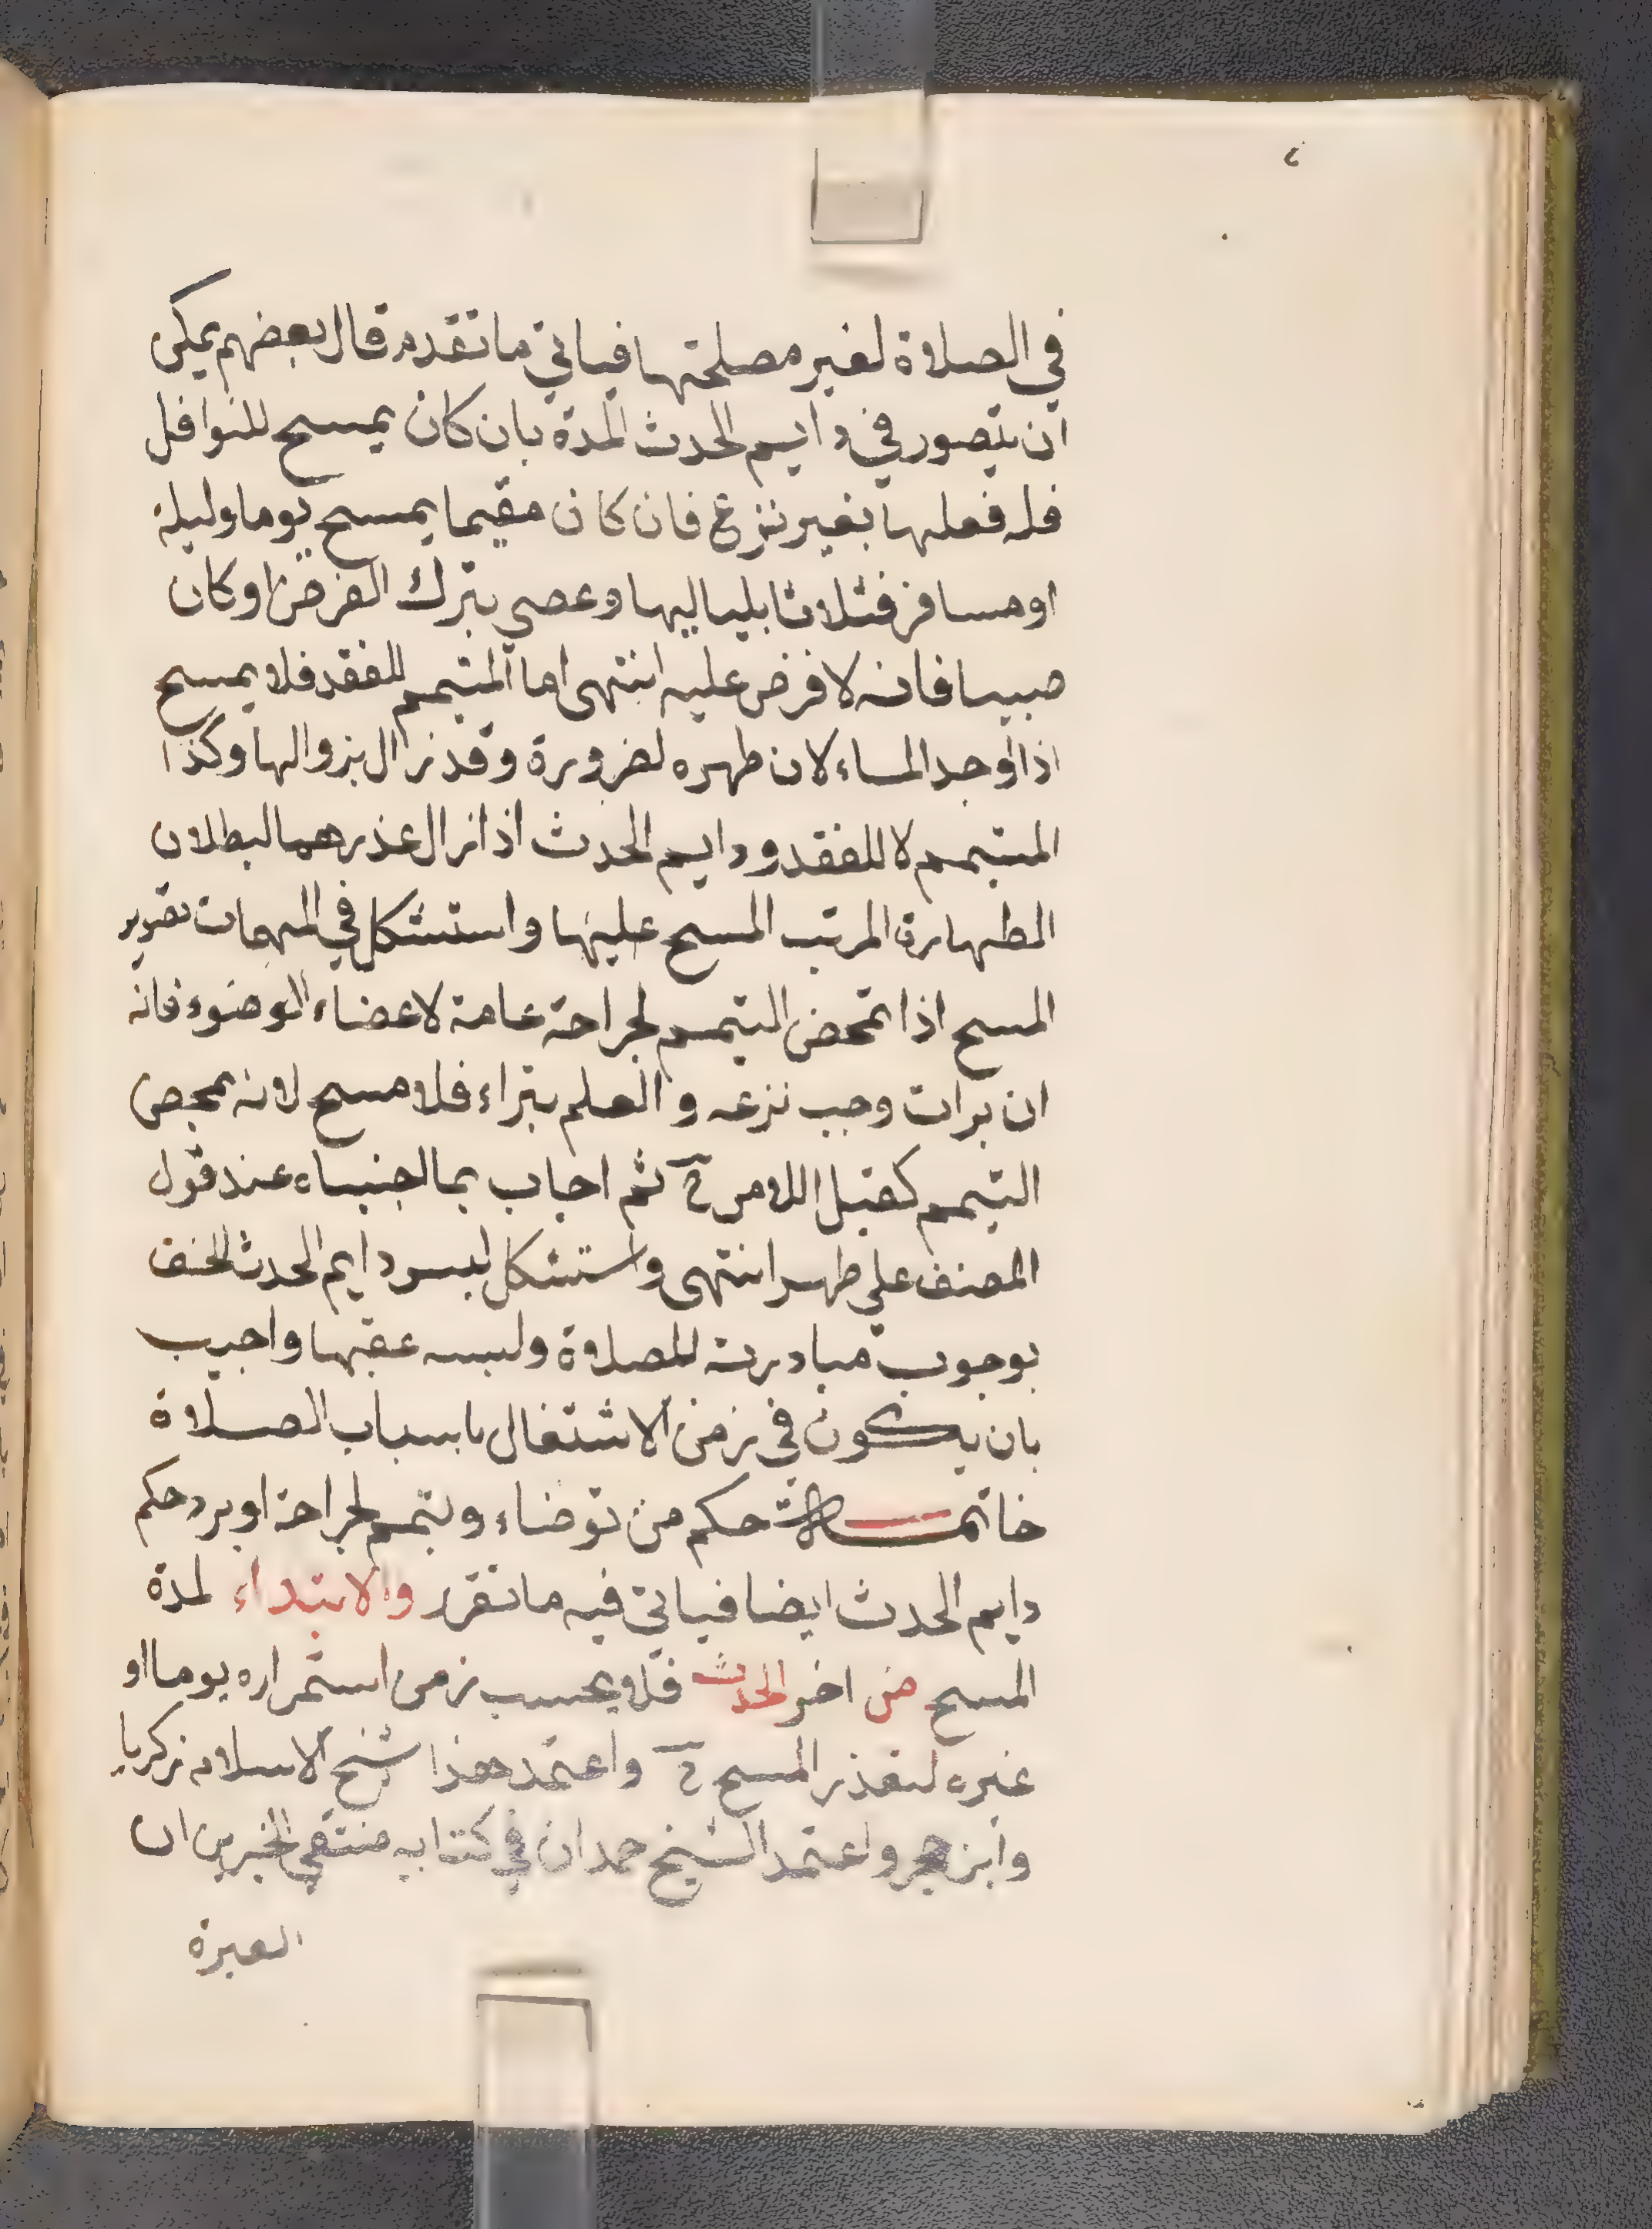 في الصلاة لغير مصلحتها فياتي ما تقدم قال بعضهم يمكن
ان يتصور في دايم الحدث المدة بان كان يمسح للنوافل
فله فعلها بغير نزع فان كان مقيما يمسح يوما وليلة
او مسافر فثلاثا بلياليها وعصي بترك الفرض او كان
صبيا فانه لا فرض عليه انتهى اما المتيمم للفقد فلا يمسح
اذا وجد الماء لان طهره لضرورة وقد زال بزوالها وكذا
المتيمم لا للفقد ودايم الحدث اذا زال عذرهما لبطلان
الطهارة المرتب المسح عليها واستشكل في المهمات تقرير
المسح اذا تمحض التيمم لجراحة عامة لاعضاء الوضوء فانه
ان برات وجب نزعه و العلم بتراء فلا مسح لانه بمحض
التيمم كقبل اللامر ثم اجاب بما عند قول
المصنف علي طهر انتهى واستشكل لبس دايم الحدث الخف
بوجوب مبادرته للصلاة ولبسه عقبها واجيب
بان يكون في زمن الاشتغال باسباب الصلاة
خاتمة حكم من توضاء وتيمم لجراحة او برد حكم
دايم الحدث ايضا فياتي فيه ما تقرر والابتداء لمدة
المسح من اخر الحدث فلا يحسب زمن استمراره يوما او
غيره لتعذر المسح واعتمد هذا شيخ الاسلام زكريا
وابن حجر واعتمد الشيخ حمدان في كتابه منتقي الخيرين ان
العبرة